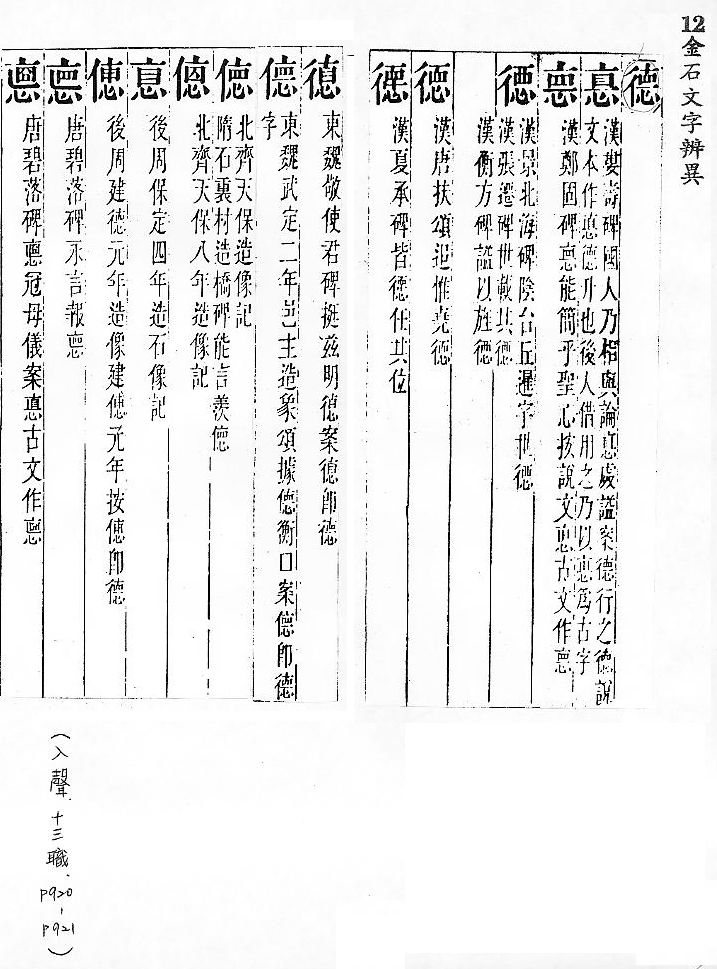 12金石文字辨異
德
惪 漢婁壽碑國人乃相與論惪處謚案德行之德說
文本作惪德升也後人借用之乃以惪爲古字
悳 漢鄭固碑悳能簡乎聖心按說文惪古文作悳
德 漢景北海碑陰台丘暹字世德
漢張遷碑世載其德
漢衡方碑謚以旌德
德 漢唐扶頌追惟堯德
德 漢夏承碑皆德任其位
德 東魏敬使君碑挺兹明德案德即德
德 東魏武定二年邑主造象頌據德衡口案德即德
字
德 北齊天保造像記
隋石裏村造橋碑能言羨德
德 北齊天保八年造像記
惪 後周保定四年造石像記
德 後周建德元年造像建德元年按德即德
悳 唐碧落碑永言報悳
悳 唐碧落碑悳冠母儀案惪古文作悳
(入聲、十三職、
p920-
p921)